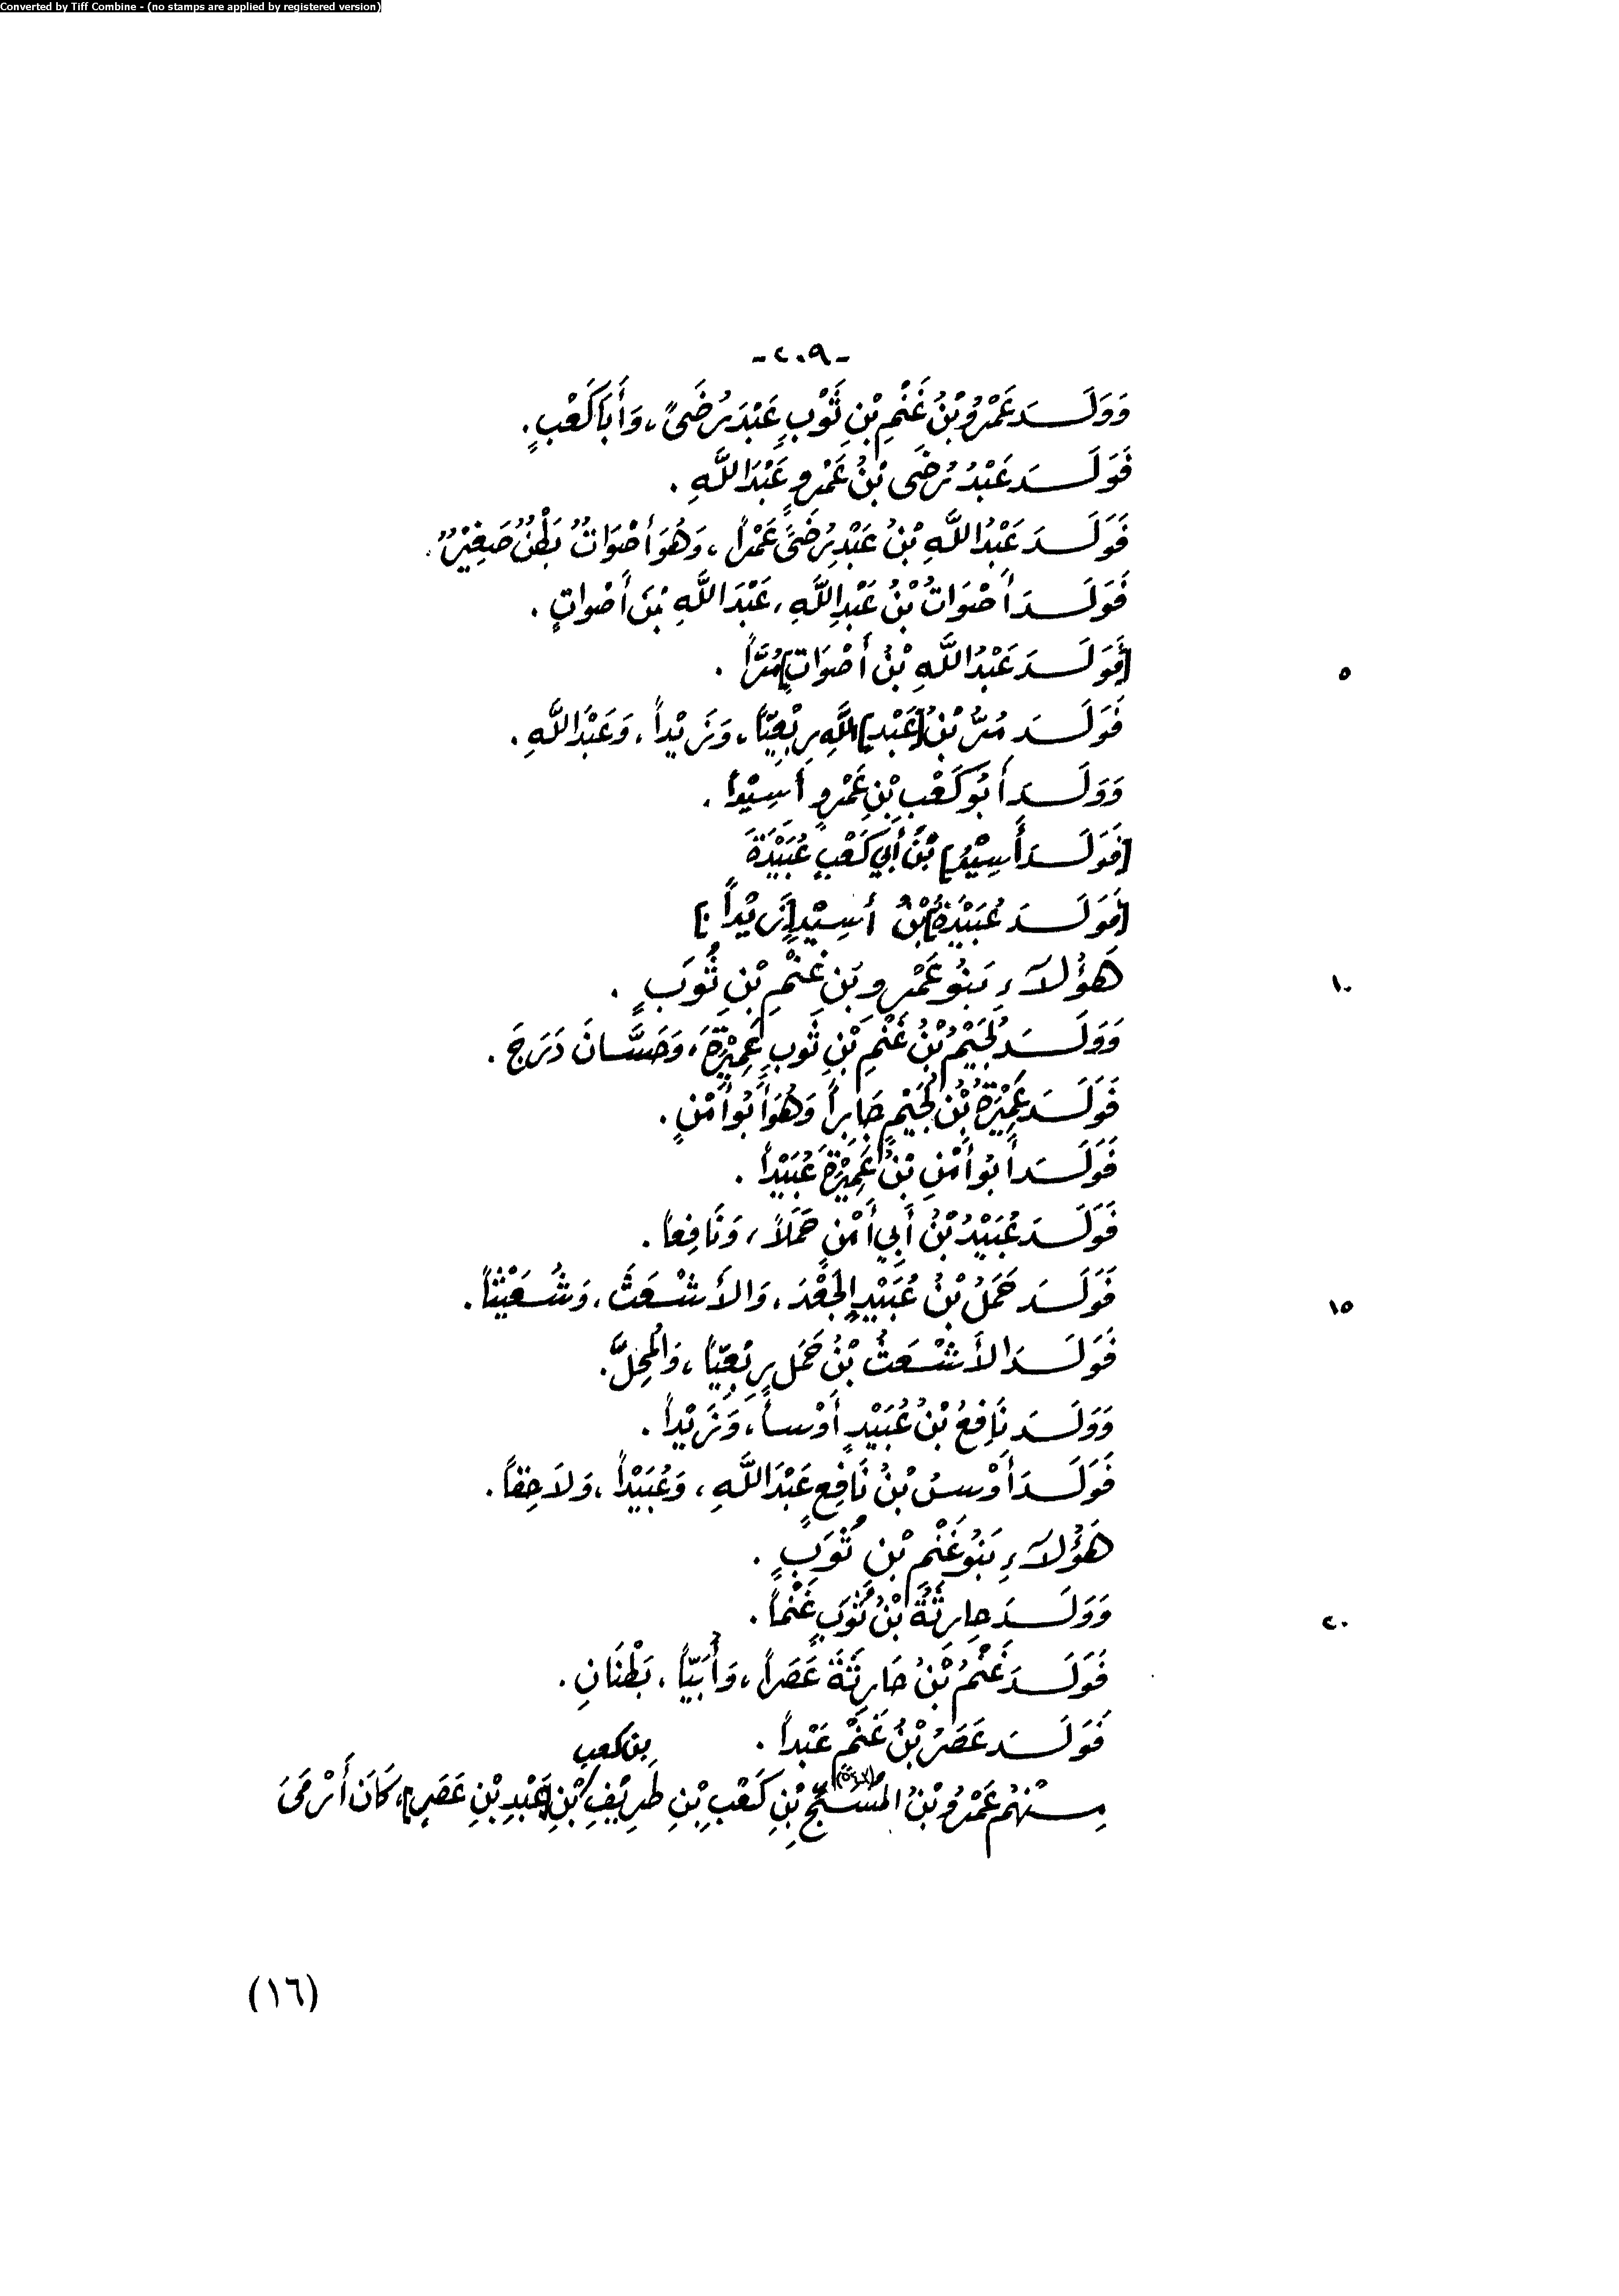 Converted by Tiff Combine - (no stamps are applied by registered version)
-٢٠٩-
وَوَلَــدَ عَمْرُو بْنُ غَنْمِ بْنِ ثَوْبٍ عَبْدَ رُضَىً، وَأَبَا كَعْبٍ.
فَوَلَــدَ عَبْدُ رُضَى بْنُ عَمْرٍو عَبْدَ اللَّهِ.
فَوَلَــدَ عَبْدُ اللَّهِ بْنُ عَبْدِ رُضَىً عَمْراً، وَهُوَ أَصْوَاتٌ بَطْنٌ صَغِيْرٌ.
فَوَلَــدَ أَصْوَاتُ بْنُ عَبْدِ اللَّهِ، عَبْدَ اللَّهِ بْنَ أَصْوَاتٍ.
[فَوَلَــدَ عَبْدُ اللَّهِ بْنُ أَصْوَاتٍ] مُرّاً.
٥
فَوَلَــدَ مُرُّ بْنُ [عَبْدِ] اللَّهِ رِبْعِيّاً، وَزَيْداً، وَعَبْدَ اللَّهِ.
وَوَلَــدَ أَبُو كَعْبِ بْنِ عَمْرٍو أَسِيْداً.
[فَوَلَــدَ أَسِيْدُ] بْنُ أَبِي كَعْبٍ عُبَيْدَةَ
[فَوَلَــدَ عُبَيْدَةُ] بْنُ أَسِيْدٍ [زَيْداً.]
هَؤُلَاءِ بَنُو عَمْرِو بْنِ غَنْمِ بْنِ ثُوَبٍ.
١٠
وَوَلَــدَ لُجَيْمُ بْنُ غَنْمِ بْنِ ثَوْبٍ عَمِيْرَةَ، وَحَسَّانَ دَرَجَ.
فَوَلَــدَ عَمِيْرَةُ بْنُ لُجَيْمٍ جَابِراً وَهُوَ أَبُو أَمْنٍ.
فَوَلَــدَ أَبُو أَمْنِ بْنُ عَمِيْرَةَ عُبَيْداً.
فَوَلَــدَ عُبَيْدُ بْنُ أَبِي أَمْنٍ حَمَلاً، وَنَافِعاً.
فَوَلَــدَ حَمَلُ بْنُ عُبَيْدٍ الجَعْدَ، وَالأَشْعَثَ، وَشُعَيْثاً.
١٥
فَوَلَــدَ الأَشْعَثُ بْنُ حَمَلٍ رِبْعِيّاً، وَالمُحِلَّ.
وَوَلَــدَ نَافِعُ بْنُ عُبَيْدٍ أَوْساً، وَزَيْداً.
فَوَلَــدَ أَوْسُ بْنُ نَافِعٍ عَبْدَ اللَّهِ، وَعُبَيْداً، وَلَاحِقاً.
هَؤُلَاءِ بَنُو غَنْمِ بْنِ ثُوَبٍ.
وَوَلَــدَ حَارِثَةُ بْنُ ثُوَبٍ غَنْماً.
٢٠
فَوَلَــدَ غَنْمُ بْنُ حَارِثَةَ عَصَراً، وَأُبَيّاً، بَطْنَانِ.
فَوَلَــدَ عَصَرُ بْنُ غَنْمٍ عَبْداً.
بن كعب
مِنْهُم عَمْرُو بْنُ المُسَبِّحِ بْنِ كَعْبِ بْنِ طَرِيْفِ بْنِ [عَبْدِ بْنِ عَصَرٍ]، كَانَ أَرْمَى
(١٦)